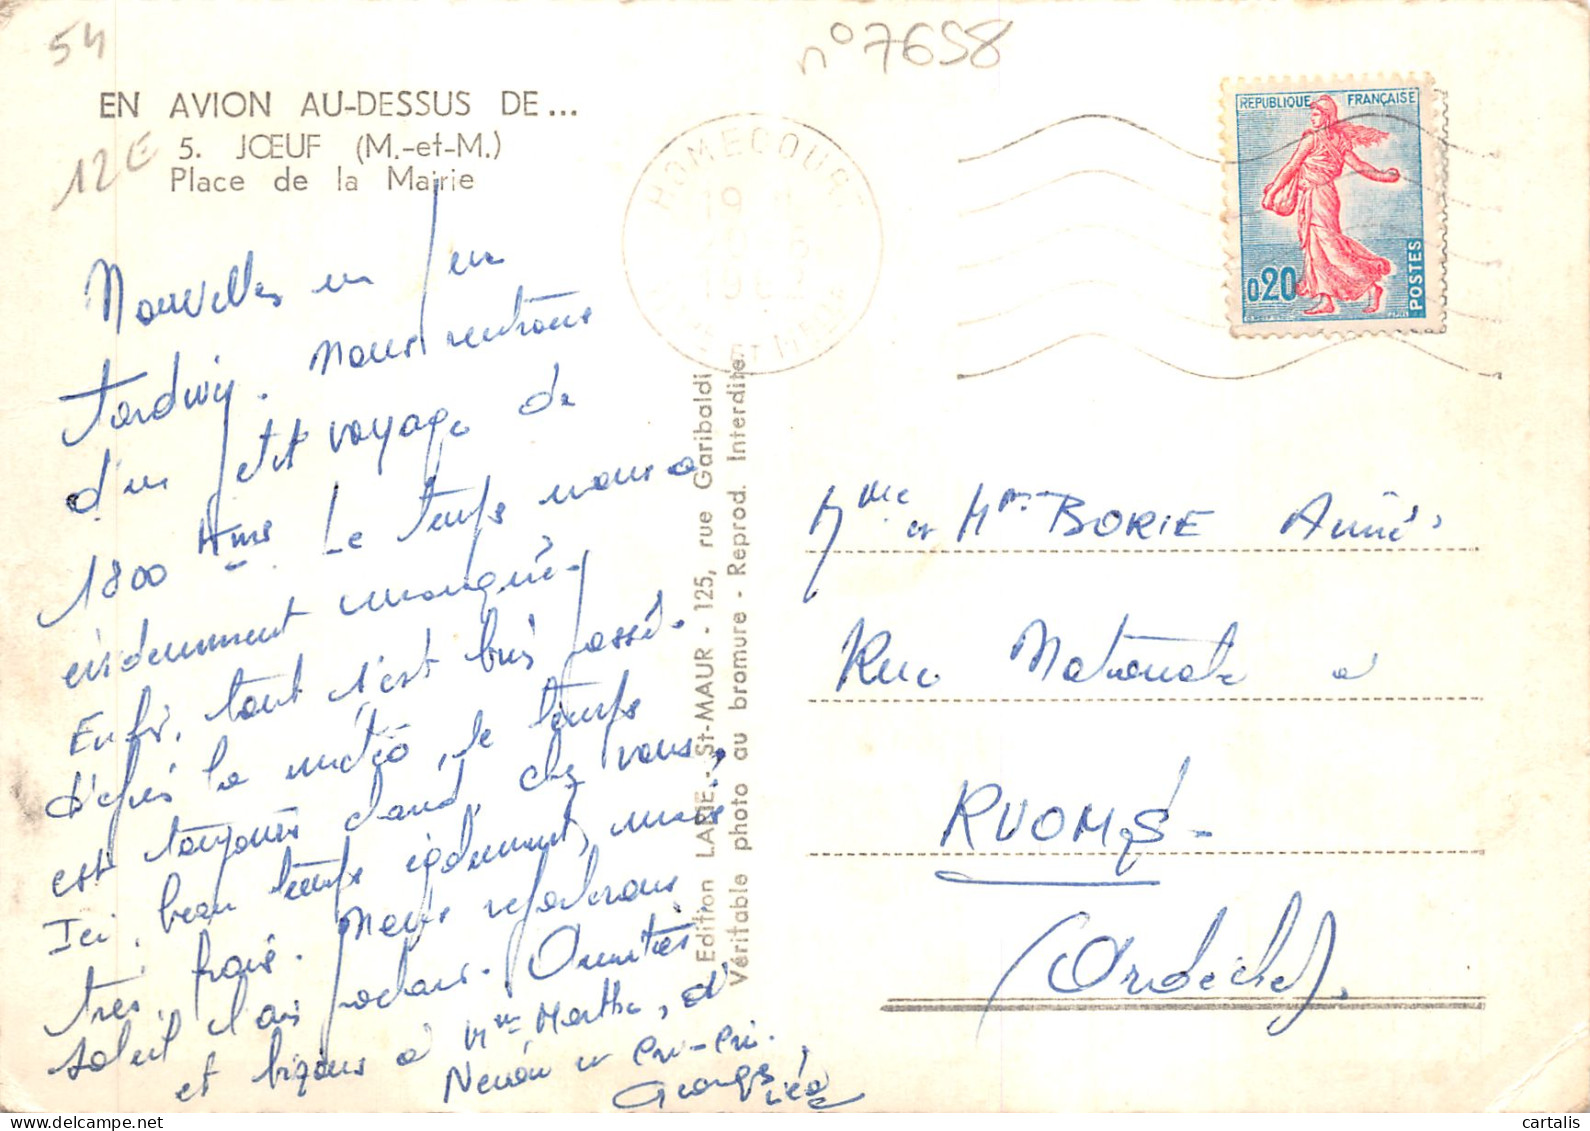 54
n°7658
EN AVION AU-DESSUS DE...
12E
5. JŒUF (M.-et-M.)
Place de la Mairie
HOMECOURT
REPUBLIQUE FRANÇAISE
0,20
POSTES
Nouvelles un peu
tardives. Nous rentrons
d'un petit voyage de
1800 Kms. Le temps nous a
évidemment manqué.
Enfin, tout s'est bien passé.
d'après la météo, le temps
est toujours "chaud" chez vous,
Ici, beau temps également, mais
très frais. Nous reparlerons
soleil l'an prochain. Amitiés
et bizous à Mme Marthe, à
Nénén et Cri-Cri.
Georges Léa
Edition LAPIE, St-MAUR - 125, rue Garibaldi
Véritable photo au bromure - Reprod. Interdite.
Mme et Mr BORIE Aimé
Rue Nationale à
RUOMS -
(Ardèche).
www.delcampe.net
cartalis